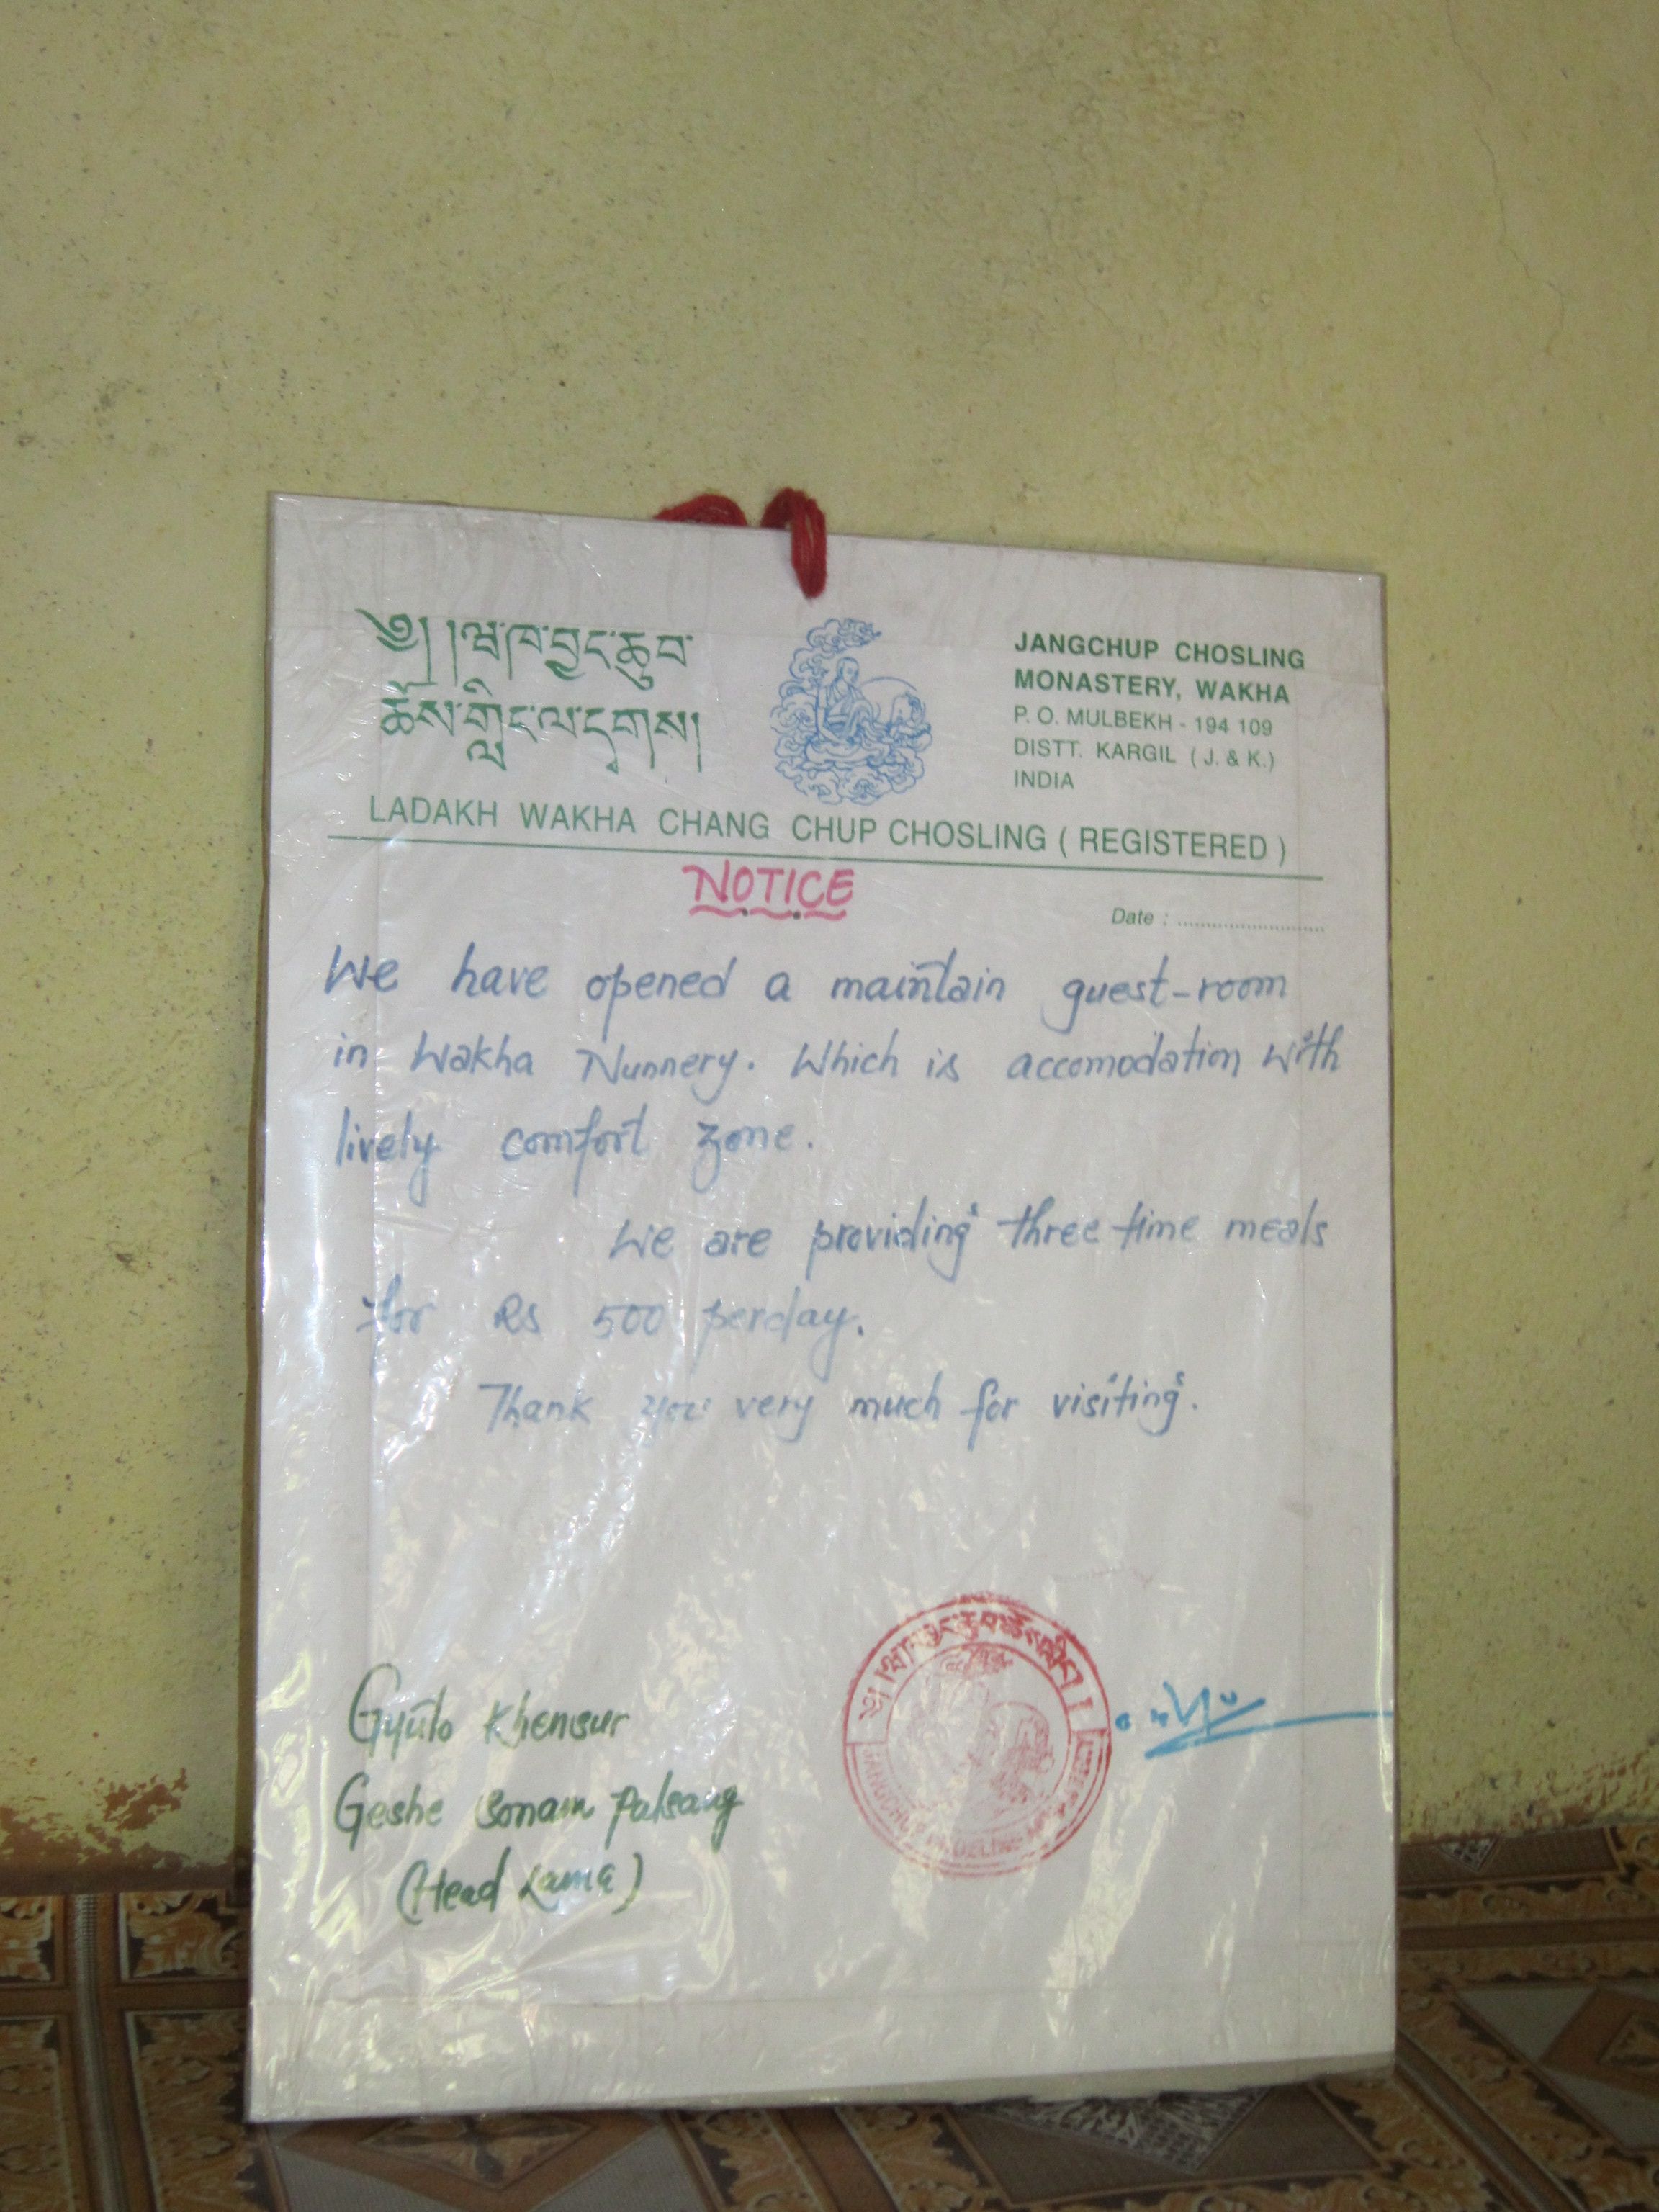 ༄། །ཝ་ཁ་བྱང་ཆུབ་
ཆོས་གླིང་ལ་དྭགས།
JANGCHUP CHOSLING
MONASTERY, WAKHA
P. O. MULBEKH - 194 109
DISTT. KARGIL ( J. & K.)
INDIA
LADAKH WAKHA CHANG CHUP CHOSLING ( REGISTERED )
NOTICE
Date : ............................
We have opened a maintain guest-room
in Wakha Nunnery. Which is accomodation with
lively comfort zone.
We are providing three time meals
for Rs 500 perday.
Thank you very much for visiting.
Gyuto Khensur
Geshe Sonam Palsang
(Head Lama)